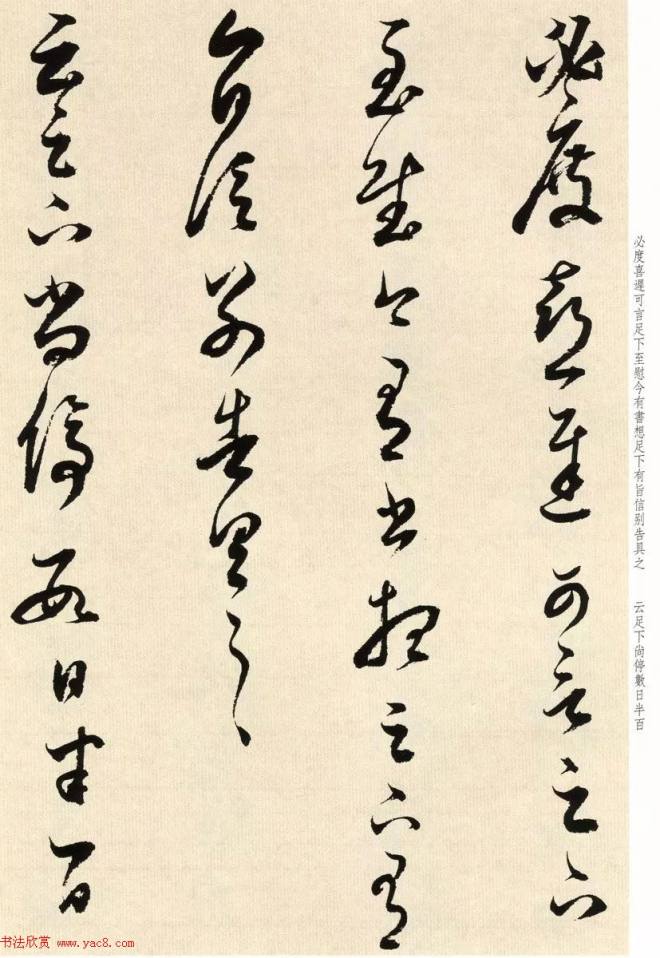 必度喜遲可言足下至慰今有書想足下有旨信别告具之　云足下尚停數日半百
必度喜遲可言足下
至慰今有書想足下有
旨信别告具之
云足下尚停數日半百
书法欣赏 www.yac8.com